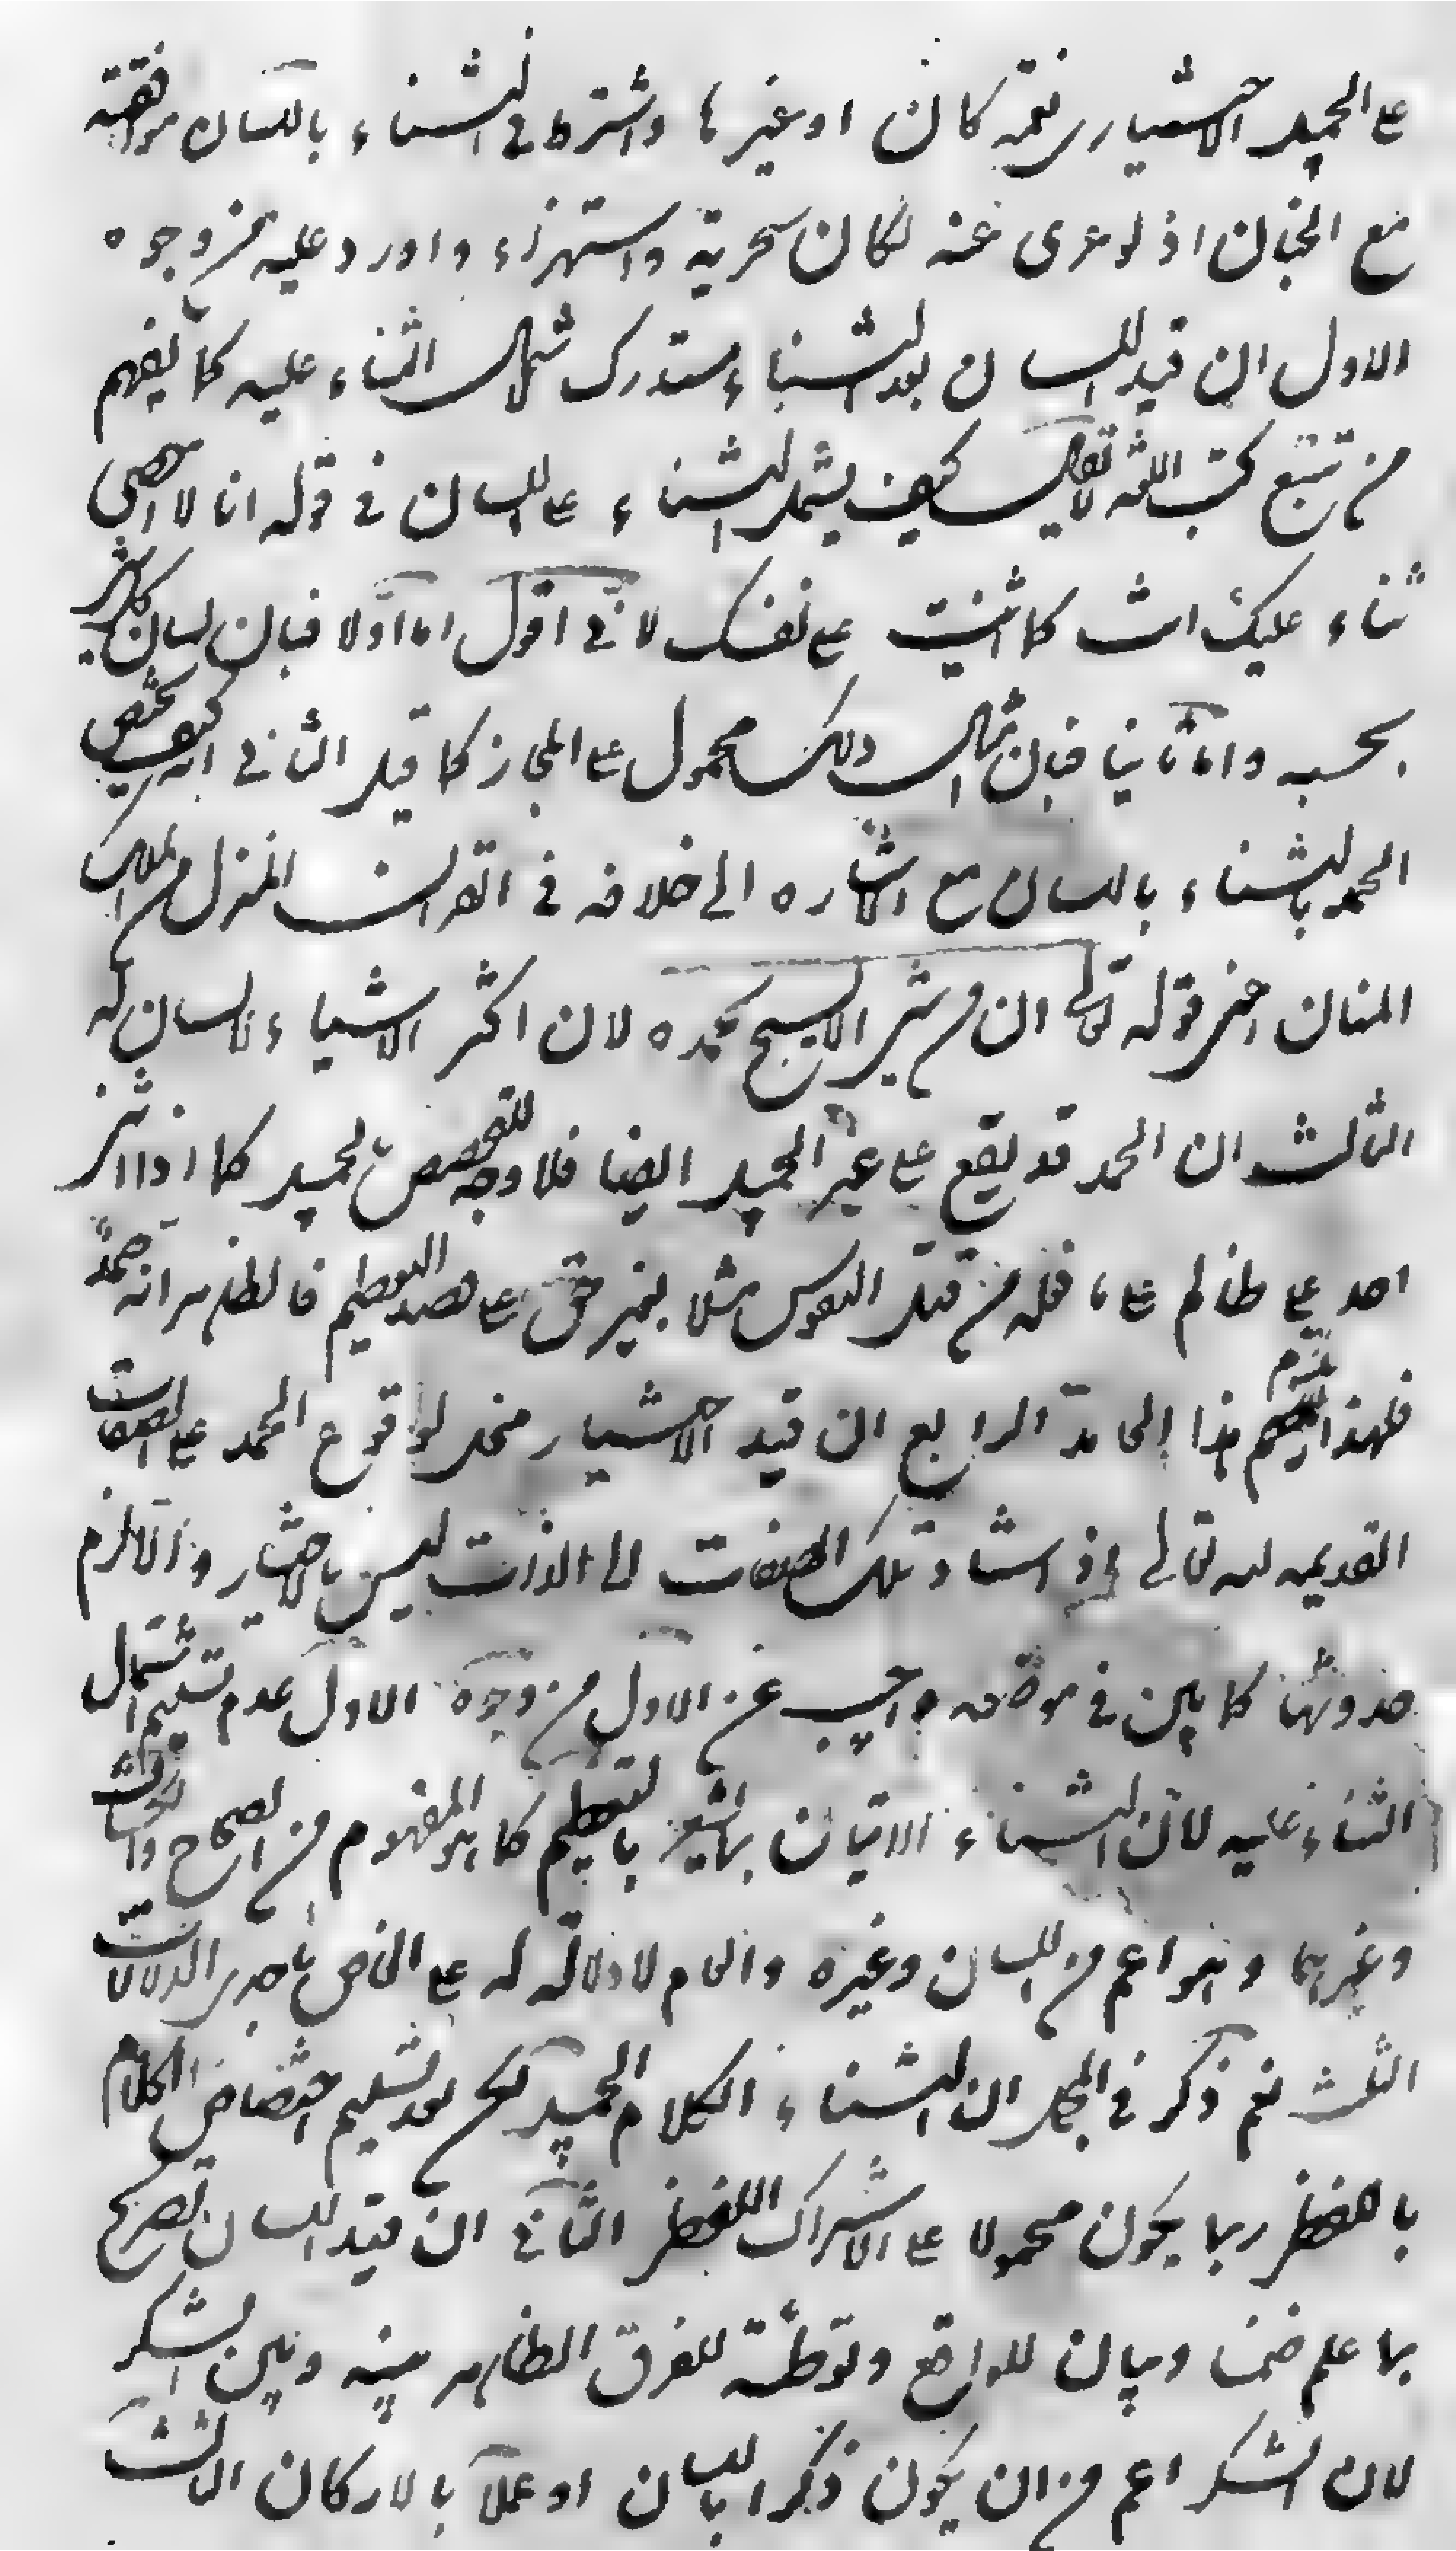 على الجميل الاختياري نعمة كان او غيرها واشترط في الثناء باللسان موافقته
مع الجنان اذ لو عرى عنه لكان سخرية واستهزاء واورد عليه من وجوه
الاول ان قيد اللسان بعد الثناء مستدرك لاشتمال الثناء عليه كما يفهم
من تتبع كتب اللغة لا يقال كيف يشمل الثناء على اللسان في قوله انا لا احصي
ثناء عليك انت كما اثنيت على نفسك لاني اقول اما اولا فبان لسان كل شيء
بحسبه واما ثانيا فبان امثال ذلك محمول على المجاز كما قيل الثاني انه كيف يختص
الحمد بالثناء باللسان مع اشارة الى خلافه في القرآن المنزل من الملك
المنان اعني قوله تعالى ان من شيء الا يسبح بحمده لان اكثر الاشياء لا لسان له
الثالث ان الحمد قد يقع على غير الجميل ايضا فلا وجه للتخصيص بالجميل كما اذا اثنى
احد على ظالم على ما فعله من قتل النفوس مثلا بغير حق على قصد التعظيم فالظاهر انه حمد
ولهذا يذم هذا الحامد الرابع ان قيد الاختيار مخل لوقوع الحمد على الصفات
القديمة لله تعالى اذ استناد تلك الصفات الى الذات ليس بالاختيار والا لزم
حدوثها كما بين في موضعه واجيب عن الاول من وجوه الاول عدم تسليم اشتمال
الثناء عليه لان الثناء الاتيان بما يشعر بالتعظيم كما هو المفهوم من الصحاح
وغيرهما وهو اعم من اللسان وغيره والعام لا دلالة له على الخاص باحدى الدلالات
الثلث نعم ذكر في المجمل ان الثناء الكلام الجميل لكن بعد تسليم اختصاص الكلام
باللفظ ربما يكون محمولا على الاشتراك اللفظي الثاني ان قيد اللسان تصريح
بما علم ضمنا وبيان للواقع وتوطئة للفرق الظاهر بينه وبين الشكر
لان الشكر اعم من ان يكون ذكرا باللسان او عملا بالاركان الثالث